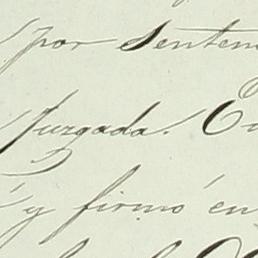 por Senten
Juzgada. Cu
y firmó en